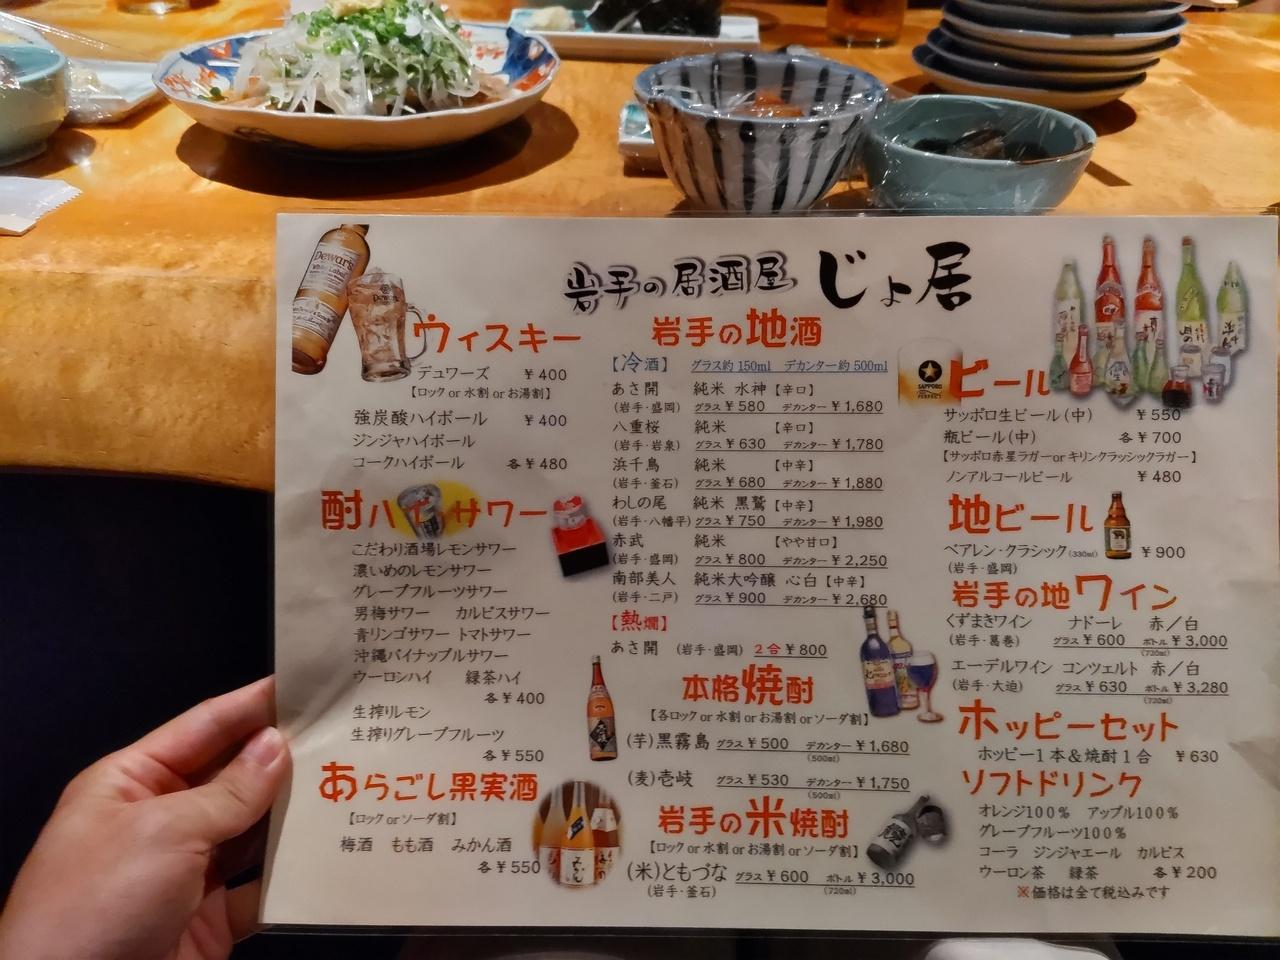 岩手の居酒屋 じょ居
Dewar's
White Label
ウィスキー
デュワーズ ¥400
【ロック or 水割 or お湯割】
強炭酸ハイボール ¥400
ジンジャハイボール
コークハイボール 各¥480
酎ハイ・サワー
こだわり酒場レモンサワー
濃いめのレモンサワー
グレープフルーツサワー
男梅サワー カルピスサワー
青リンゴサワー トマトサワー
沖縄パイナップルサワー
ウーロンハイ 緑茶ハイ
各¥400
生搾りレモン
生搾りグレープフルーツ
各¥550
あらごし果実酒
【ロック or ソーダ割】
梅酒 もも酒 みかん酒
各¥550
岩手の地酒
【冷酒】 グラス約150ml デカンター約500ml
あさ開 純米 水神【辛口】
(岩手・盛岡) グラス¥580 デカンター¥1,680
八重桜 純米 【辛口】
(岩手・岩泉) グラス¥630 デカンター¥1,780
浜千鳥 純米 【中辛】
(岩手・釜石) グラス¥680 デカンター¥1,880
わしの尾 純米 黒鷲【中辛】
(岩手・八幡平) グラス¥750 デカンター¥1,980
赤武 純米 【やや甘口】
(岩手・盛岡) グラス¥800 デカンター¥2,250
南部美人 純米大吟醸 心白【中辛】
(岩手・二戸) グラス¥900 デカンター¥2,680
【熱燗】
あさ開 (岩手・盛岡) 2合¥800
本格焼酎
【各ロック or 水割 or お湯割 or ソーダ割】
(芋)黒霧島 グラス¥500 デカンター¥1,680
(500ml)
(麦)壱岐 グラス¥530 デカンター¥1,750
(500ml)
岩手の米焼酎
【ロック or 水割 or お湯割 or ソーダ割】
(米)ともづな グラス¥600 ボトル¥3,000
(岩手・釜石) (720ml)
SAPPORO
ビール
サッポロ生ビール(中) ¥550
瓶ビール(中) 各¥700
【サッポロ赤星ラガー or キリンクラッシックラガー】
ノンアルコールビール ¥480
地ビール
ベアレン・クラシック(330ml) ¥900
(岩手・盛岡)
岩手の地ワイン
くずまきワイン ナドーレ 赤/白
(岩手・葛巻) グラス¥600 ボトル¥3,000
(720ml)
エーデルワイン コンツェルト 赤/白
(岩手・大迫) グラス¥630 ボトル¥3,280
(720ml)
ホッピーセット
ホッピー1本&焼酎1合 ¥630
ソフトドリンク
オレンジ100% アップル100%
グレープフルーツ100%
コーラ ジンジャエール カルピス
ウーロン茶 緑茶 各¥200
※価格は全て税込みです